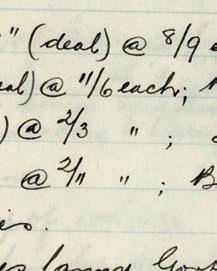 " (deal) @ 8/9 e
eal) @ 11/6 each;
) @ 2/3 " ;
@ 2/11 " ;